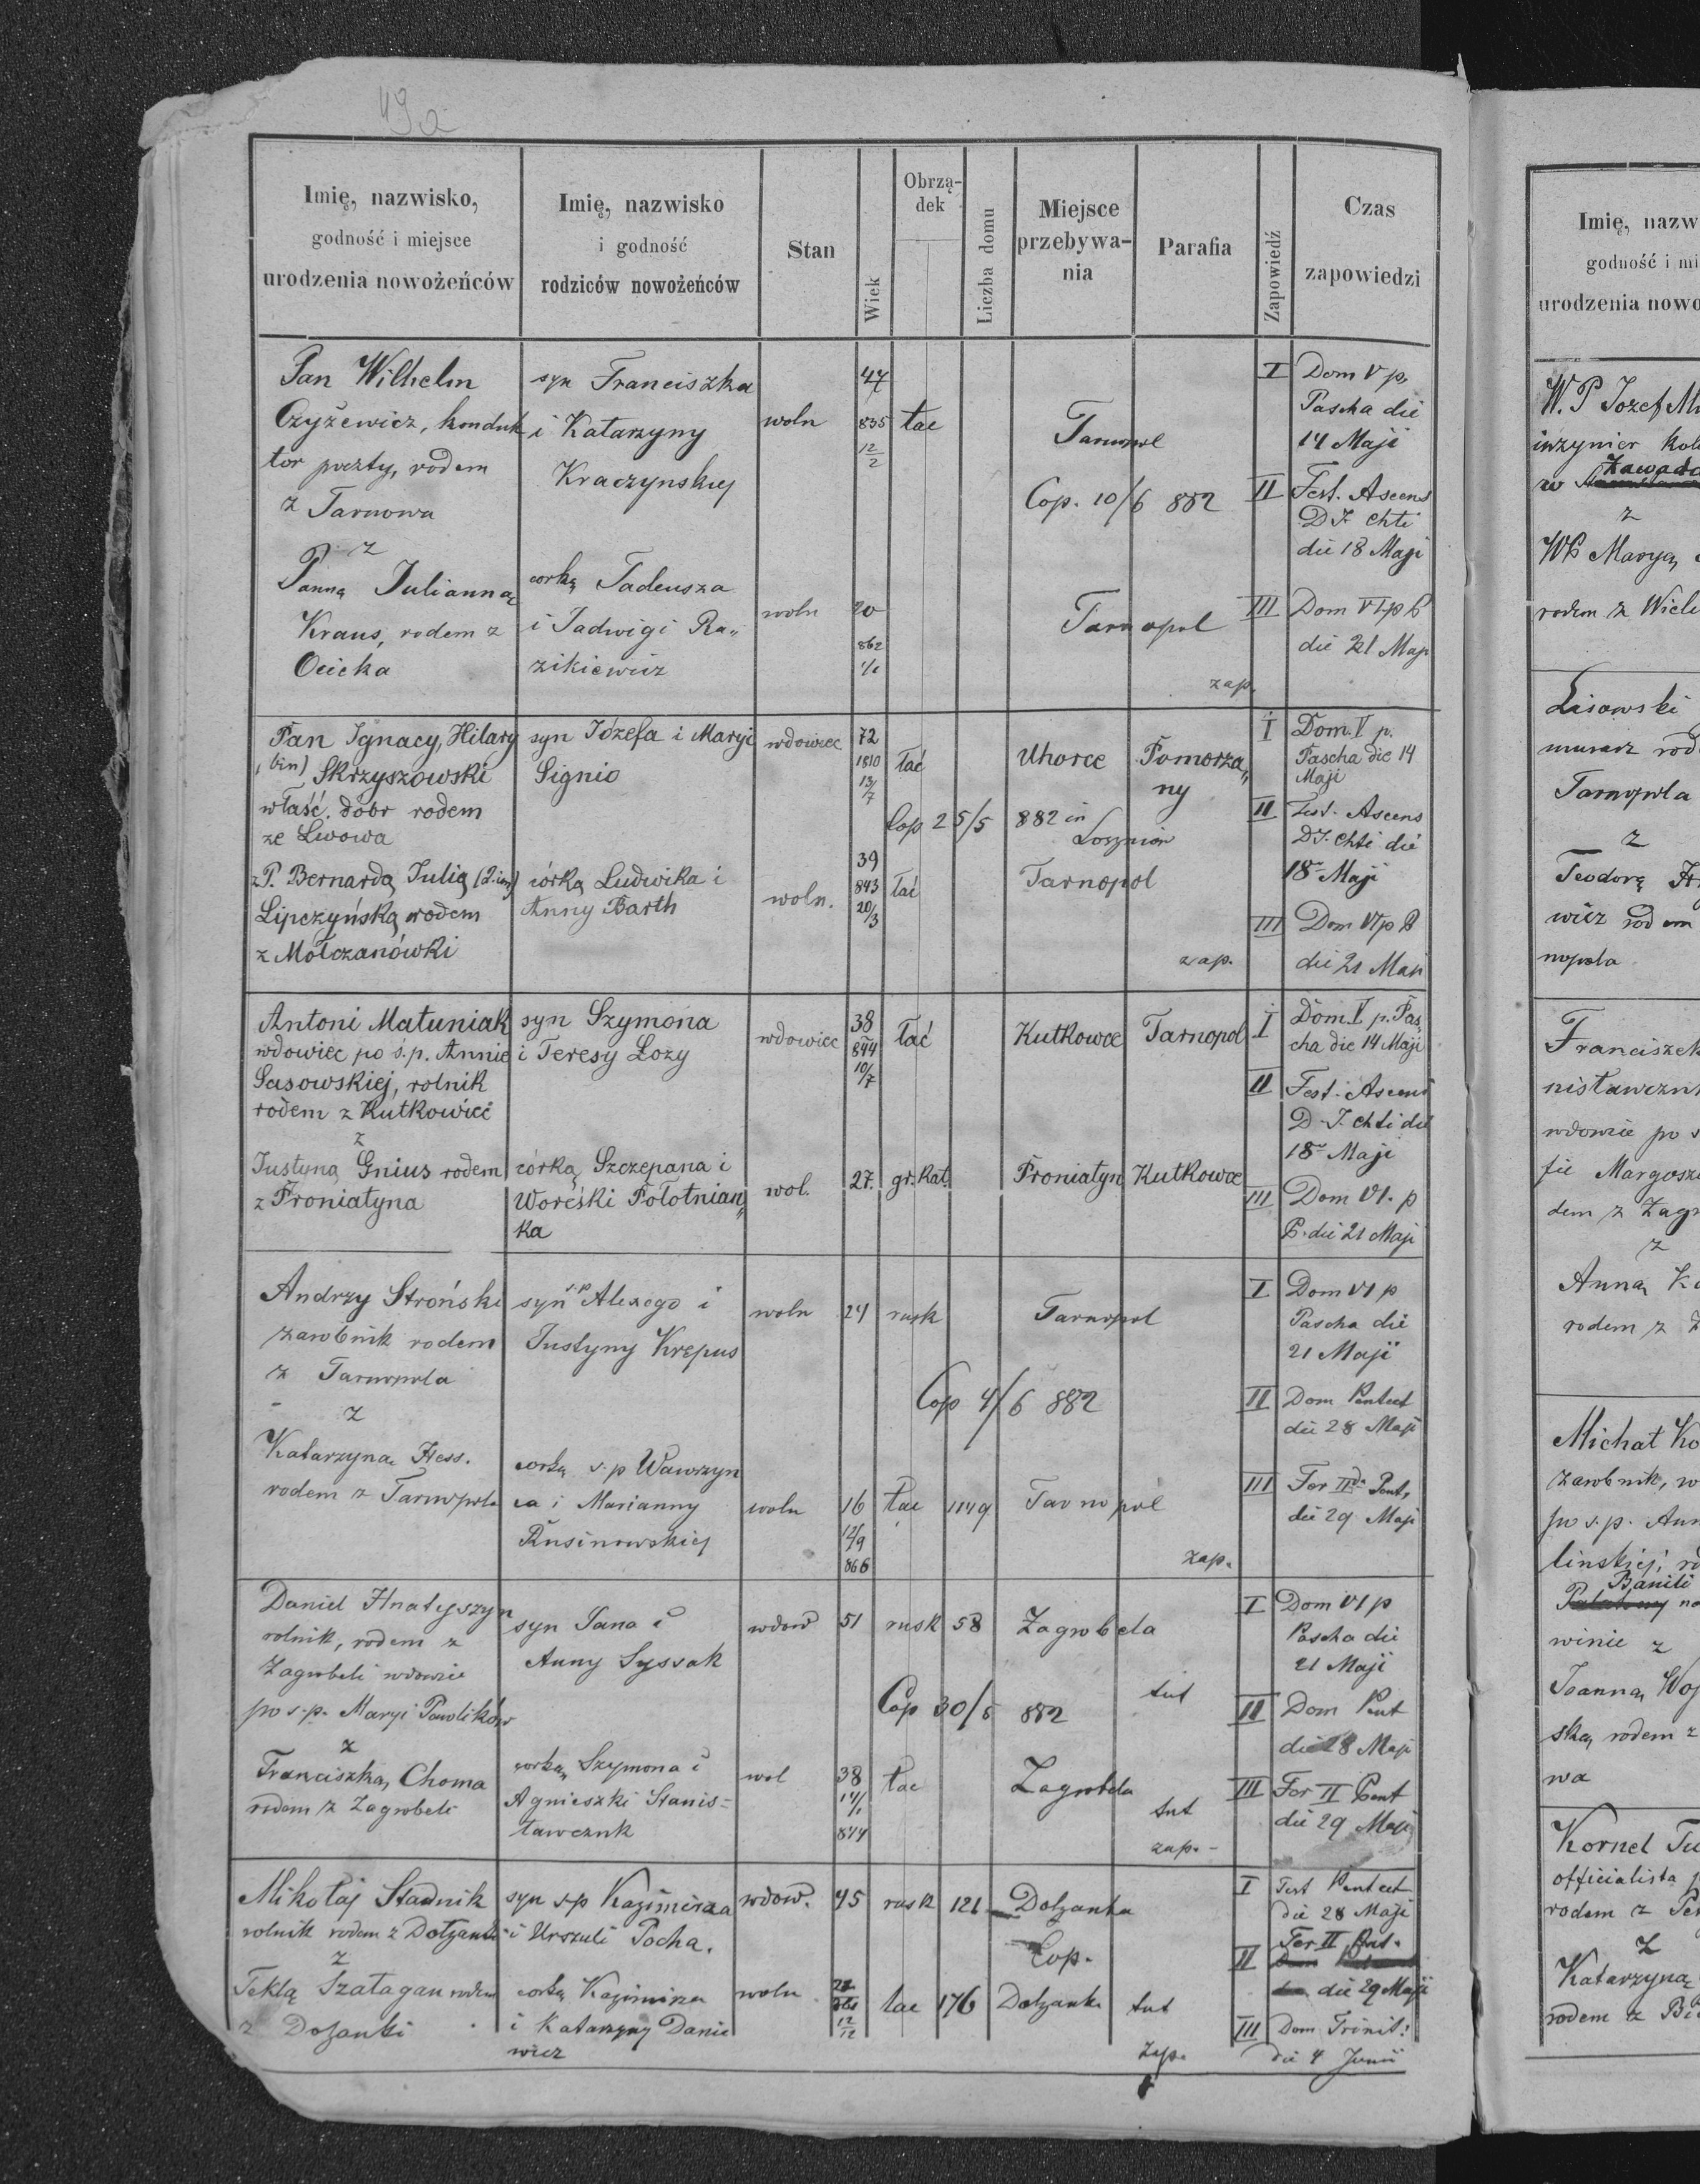 49a
Imię, nazwisko,
godność i miejsce
urodzenia nowożeńców
Imię, nazwisko
i godność
rodziców nowożeńców
Stan
Wiek
Obrzą-
dek
Liczba domu
Miejsce
przebywa-
nia
Parafia
Zapowiedź
Czas
zapowiedzi
Pan Wilhelm
Czyżewicz, konduk
tor poczty, rodem
z Tarnowa
z
Panną Juliannaę
Kraus, rodem z
Ocieka
syn Franciszka
i Katarzyny
Kraczynskiej
corką Tadeusza
i Jadwigi Ra„
zikiewicz
woln
47
835
12/2
łac
Tarnopol
Cop. 10/6 882
woln
20
862
1/1
Tarnopol
zap.
I Dom V p.
Pascha die
14 Maji
II Fest. Ascens
D J. Chti
die 18 Maji
III Dom VI p P
die 21 Maji
Pan Ignacy, Hilary
(bin) Skrzyszowski
właść. dóbr rodem
ze Lwowa
z P. Bernardą Julią (2. im)
Lipczyńską rodem
z Mołczanówki
syn Józefa i Maryi
Signio
córką Ludwika i
Anny Barth
wdowiec
72
1810
13/7
łać
Uhorce
Pomorza„
ny
Cop 25/5 882 in
Losznion
woln.
39
843
20/3
łać
Tarnopol
zap.
I Dom. V p.
Pascha die 14
Maji
II Fest. Ascens
D J. Chti die
18 Maji
III Dom VI p P
die 21 Maji
Antoni Matuniak
wdowiec po ś.p. Annie
Sasowskiej, rolnik
rodem z Kutkowiec
z
Justyną Gnius rodem
z Proniatyna
syn Szymona
i Teresy Łozy
córką Szczepana i
Woreśki Połotnian„
ka
wdowiec
38
844
10/7
łać
Kutkowce
Tarnopol
wol.
27.
gr. kat.
Proniatyn
Kutkowce
I Dom. V p. Pas„
cha die 14 Maji
II Fest. Ascens
D. J. Chti die
18 Maji
III Dom VI. p
P. die 21 Maji
Andrzy Stroński
zarobnik rodem
z Tarnopola
z
Katarzyną Hess.
rodem z Tarnopola
syn s.p Alexego i
Justyny Krepus
corką s.p Wawrzyn
ca i Marianny
Rusinowskiej
woln
24
rusk
Tarnopol
Cop 4/6 882
woln
16
12/9
866
łac
1149
Tarnopol
zap.
I Dom VI p
Pascha die
21 Maji
II Dom Pentect
die 28 Maji
III Fer IIda Pent,
die 29 Maji
Daniel Hnatyszyn
rolnik, rodem z
Zagrobeli wdowiec
po s.p. Maryi Pawlików
z
Franciszką Choma
rodem z Zagrobeli
syn Jana i
Anny Syssak
corką Szymona i
Agnieszki Stanis=
ławczuk
wdow
51
rusk
58
Zagrobela
tut
Cop 30/5 882
wol
38
17/1
844
łac
Zagrobela
tut
zap. -
I Dom VI p
Pascha die
21 Maji
II Dom Pent
die 28 Maji
III Fer II Pent
die 29 Maji
Mikołaj Stadnik
rolnik rodem z Dołzanki
z
Teklą Szatagan rodem
z Dołzanki
syn s.p Kazimirza
i Urszuli Pocha.
corką Kazimirza
i Katarzyny Danie
wicz
wdow.
45
rusk
121
Dołzanka
Cop.
woln
12/12
łac
176
Dołzanka
tut
zap.
I Fest Pentect
die 28 Maji
II Fer II Pent.
die 29 Maji
III Dom Trinit:
die 4 Junii
Imię, nazw
godność i mi
urodzenia nowo
W. P Jozef
inżynier kol
w Zawad
z
WP Maryą
rodem z Wiel
Lisowski
murarz rod
Tarnopola
z
Teodorą
wicz rodem
nopola
Franciszek
nisławczuk
wdowiec po s
fii Margosz
dem z Zagr
z
Anną
rodem z
Michał Ko
zarobnik, w
po s.p. Ann
linskiej; ro
Banili
winie z
Joanną Woj
ską, rodem z
wa
Kornel
officialista
rodem z
z
Katarzyną
rodem z